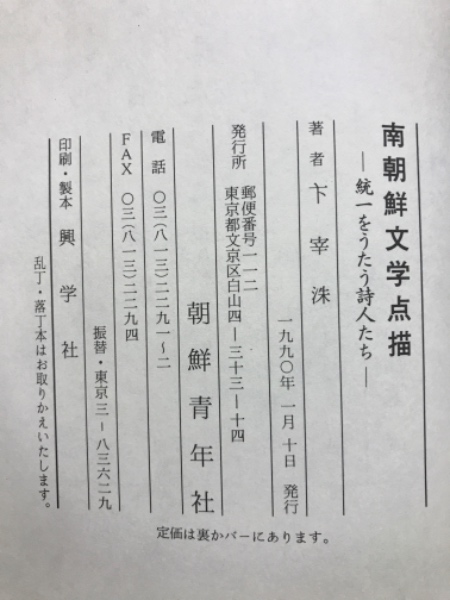 南朝鮮文学点描
―統一をうたう詩人たち―
著者 卞宰洙
一九九〇年一月十日 発行
発行所 郵便番号一一二
東京都文京区白山四―三十三―十四
朝鮮青年社
電話 〇三(八一三)二二九一〜二
FAX 〇三(八一三)二二九四
振替・東京三―八三六二九
印刷・製本 興学社
乱丁・落丁本はお取りかえいたします。
定価は裏かバーにあります。